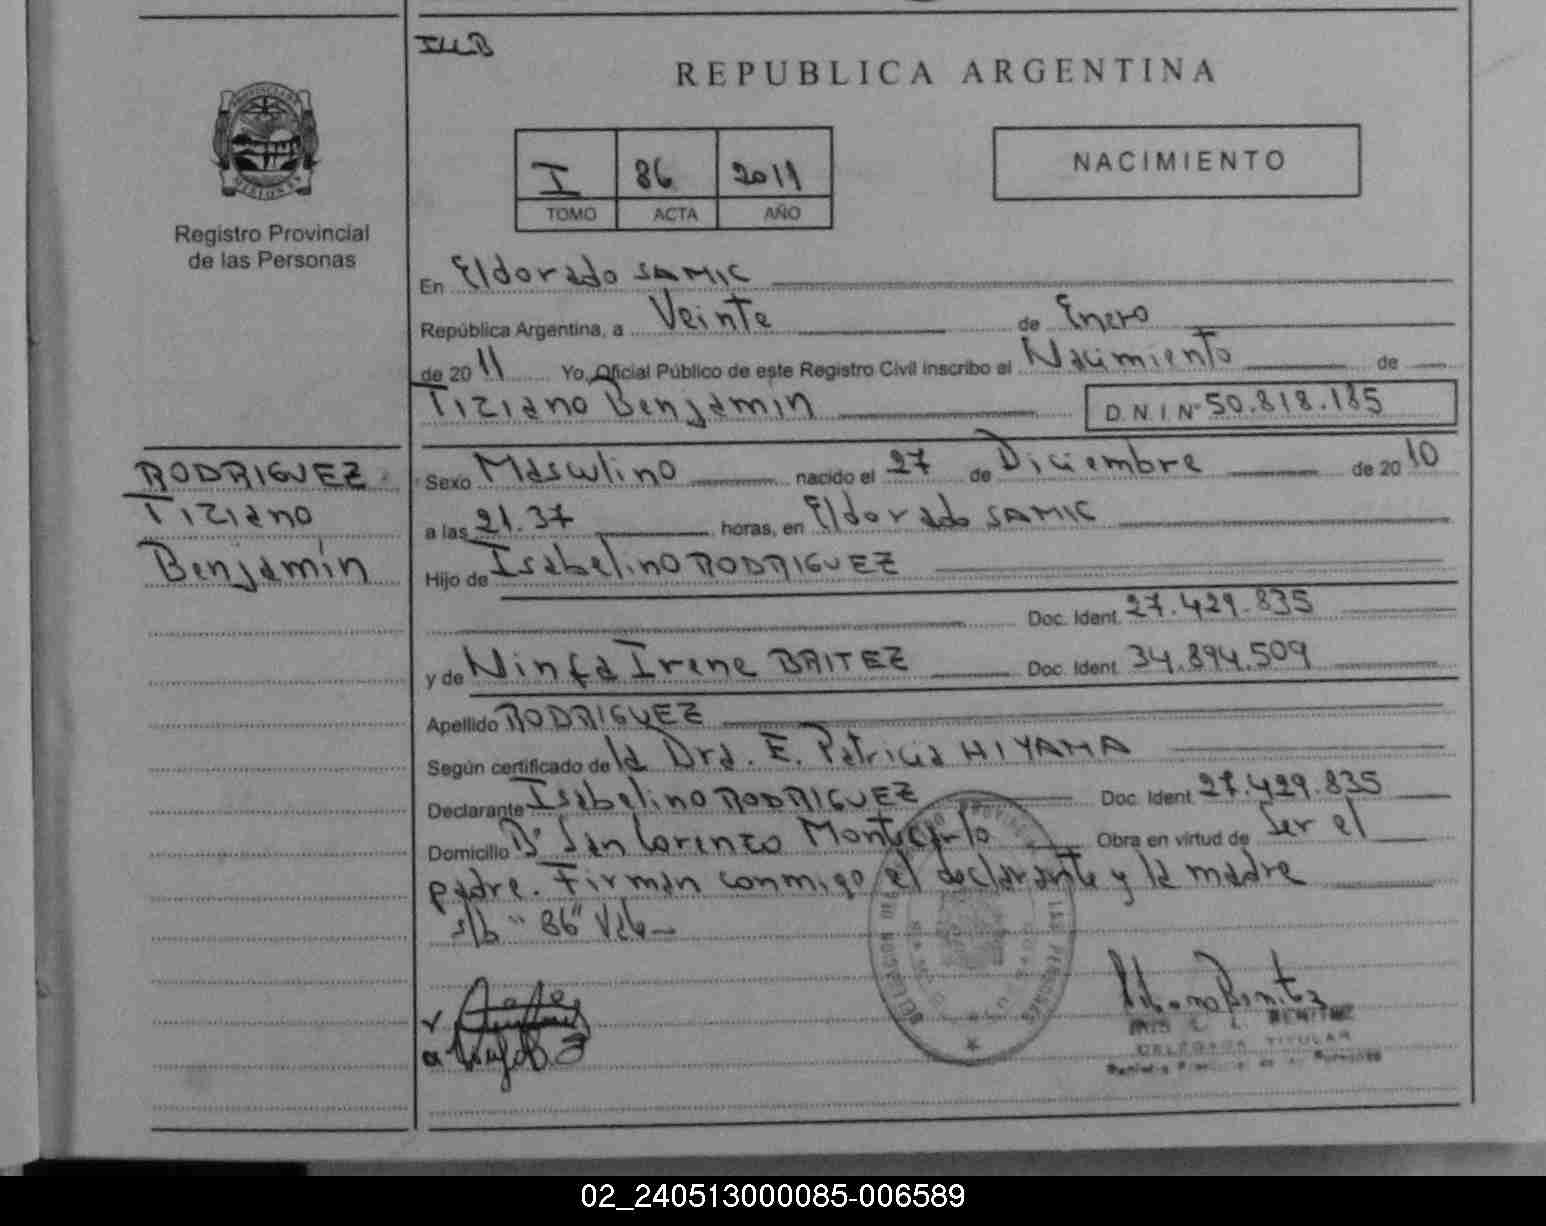 ILLB
REPUBLICA ARGENTINA
I 86 2011
TOMO ACTA AÑO
NACIMIENTO
Registro Provincial
de las Personas
En Eldorado SAMIC
República Argentina, a Veinte de Enero
de 2011 Yo, Oficial Público de este Registro Civil inscribo el Nacimiento de
Tiziano Benjamin D.N.I. Nº 50.818.185
RODRIGUEZ
Tiziano
Benjamín
Sexo Masculino nacido el 27 de Diciembre de 2010
a las 21.37 horas, en Eldorado SAMIC
Hijo de Isabelino RODRIGUEZ
Doc. Ident. 27.429.835
y de Ninfa Irene BRITEZ Doc. Ident. 34.894.509
Apellido RODRIGUEZ
Según certificado de la Dra. E. Patricia HIYAMA
Declarante Isabelino RODRIGUEZ Doc. Ident. 27.429.835
Domicilio Bº San Lorenzo Montecarlo Obra en virtud de ser el
padre. Firman conmigo el declarante y la madre
s/b "86" Vale
BENITEZ
DELEGADA TITULAR
02_240513000085-006589